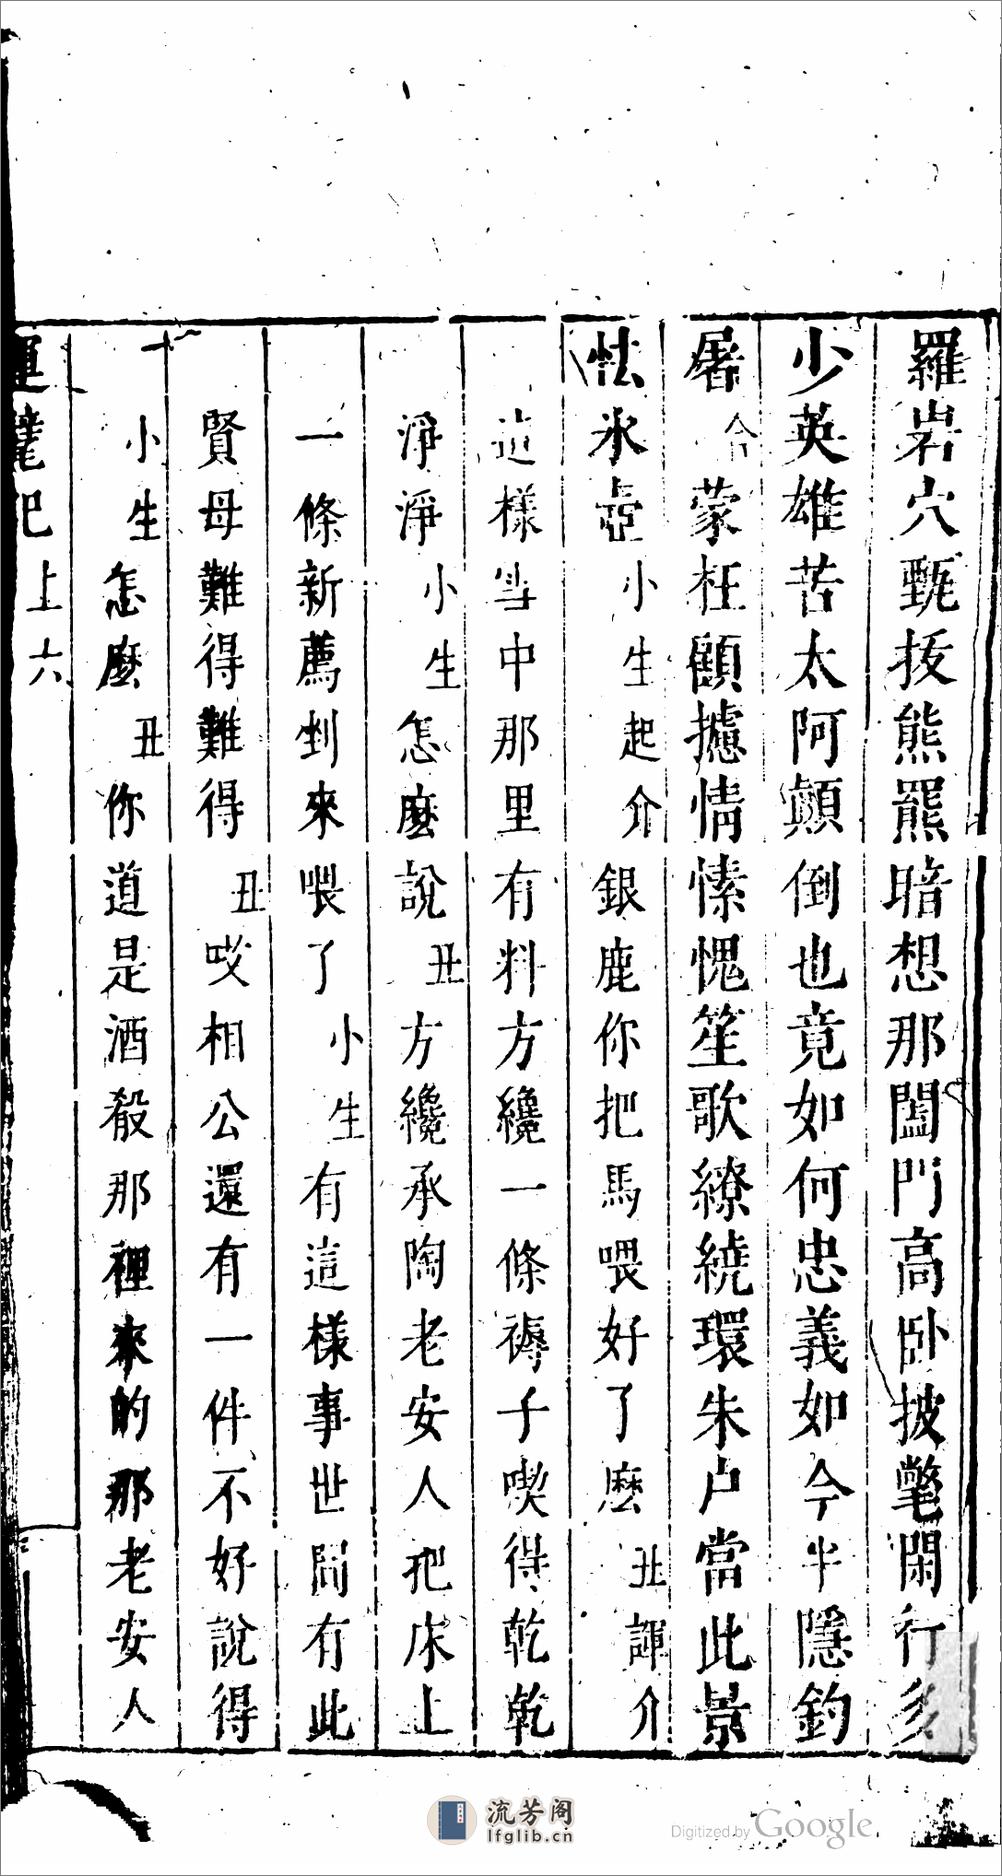 羅岩穴甄拔熊羆暗想那闔門高卧披氅閑行多
少英雄苦太阿顛倒也竟如何忠義如今半隱釣
屠合蒙枉顧攄情愫愧笙歌繚繞環朱户當此景
怯氷壺小生起介銀鹿你把馬喂好了麽丑諢介
這樣雪中那里有料方纔一條褥子喫得乾乾
淨淨小生怎麽說丑方纔承陶老安人把床上
一條新薦剉來喂了小生有這樣事世間有此
賢母難得難得丑哎相公還有一件不好說得
小生怎麽丑你道是酒殽那裡來的那老安人
運甓記上六
流芳阁
lfglib.cn
Digitized by Google